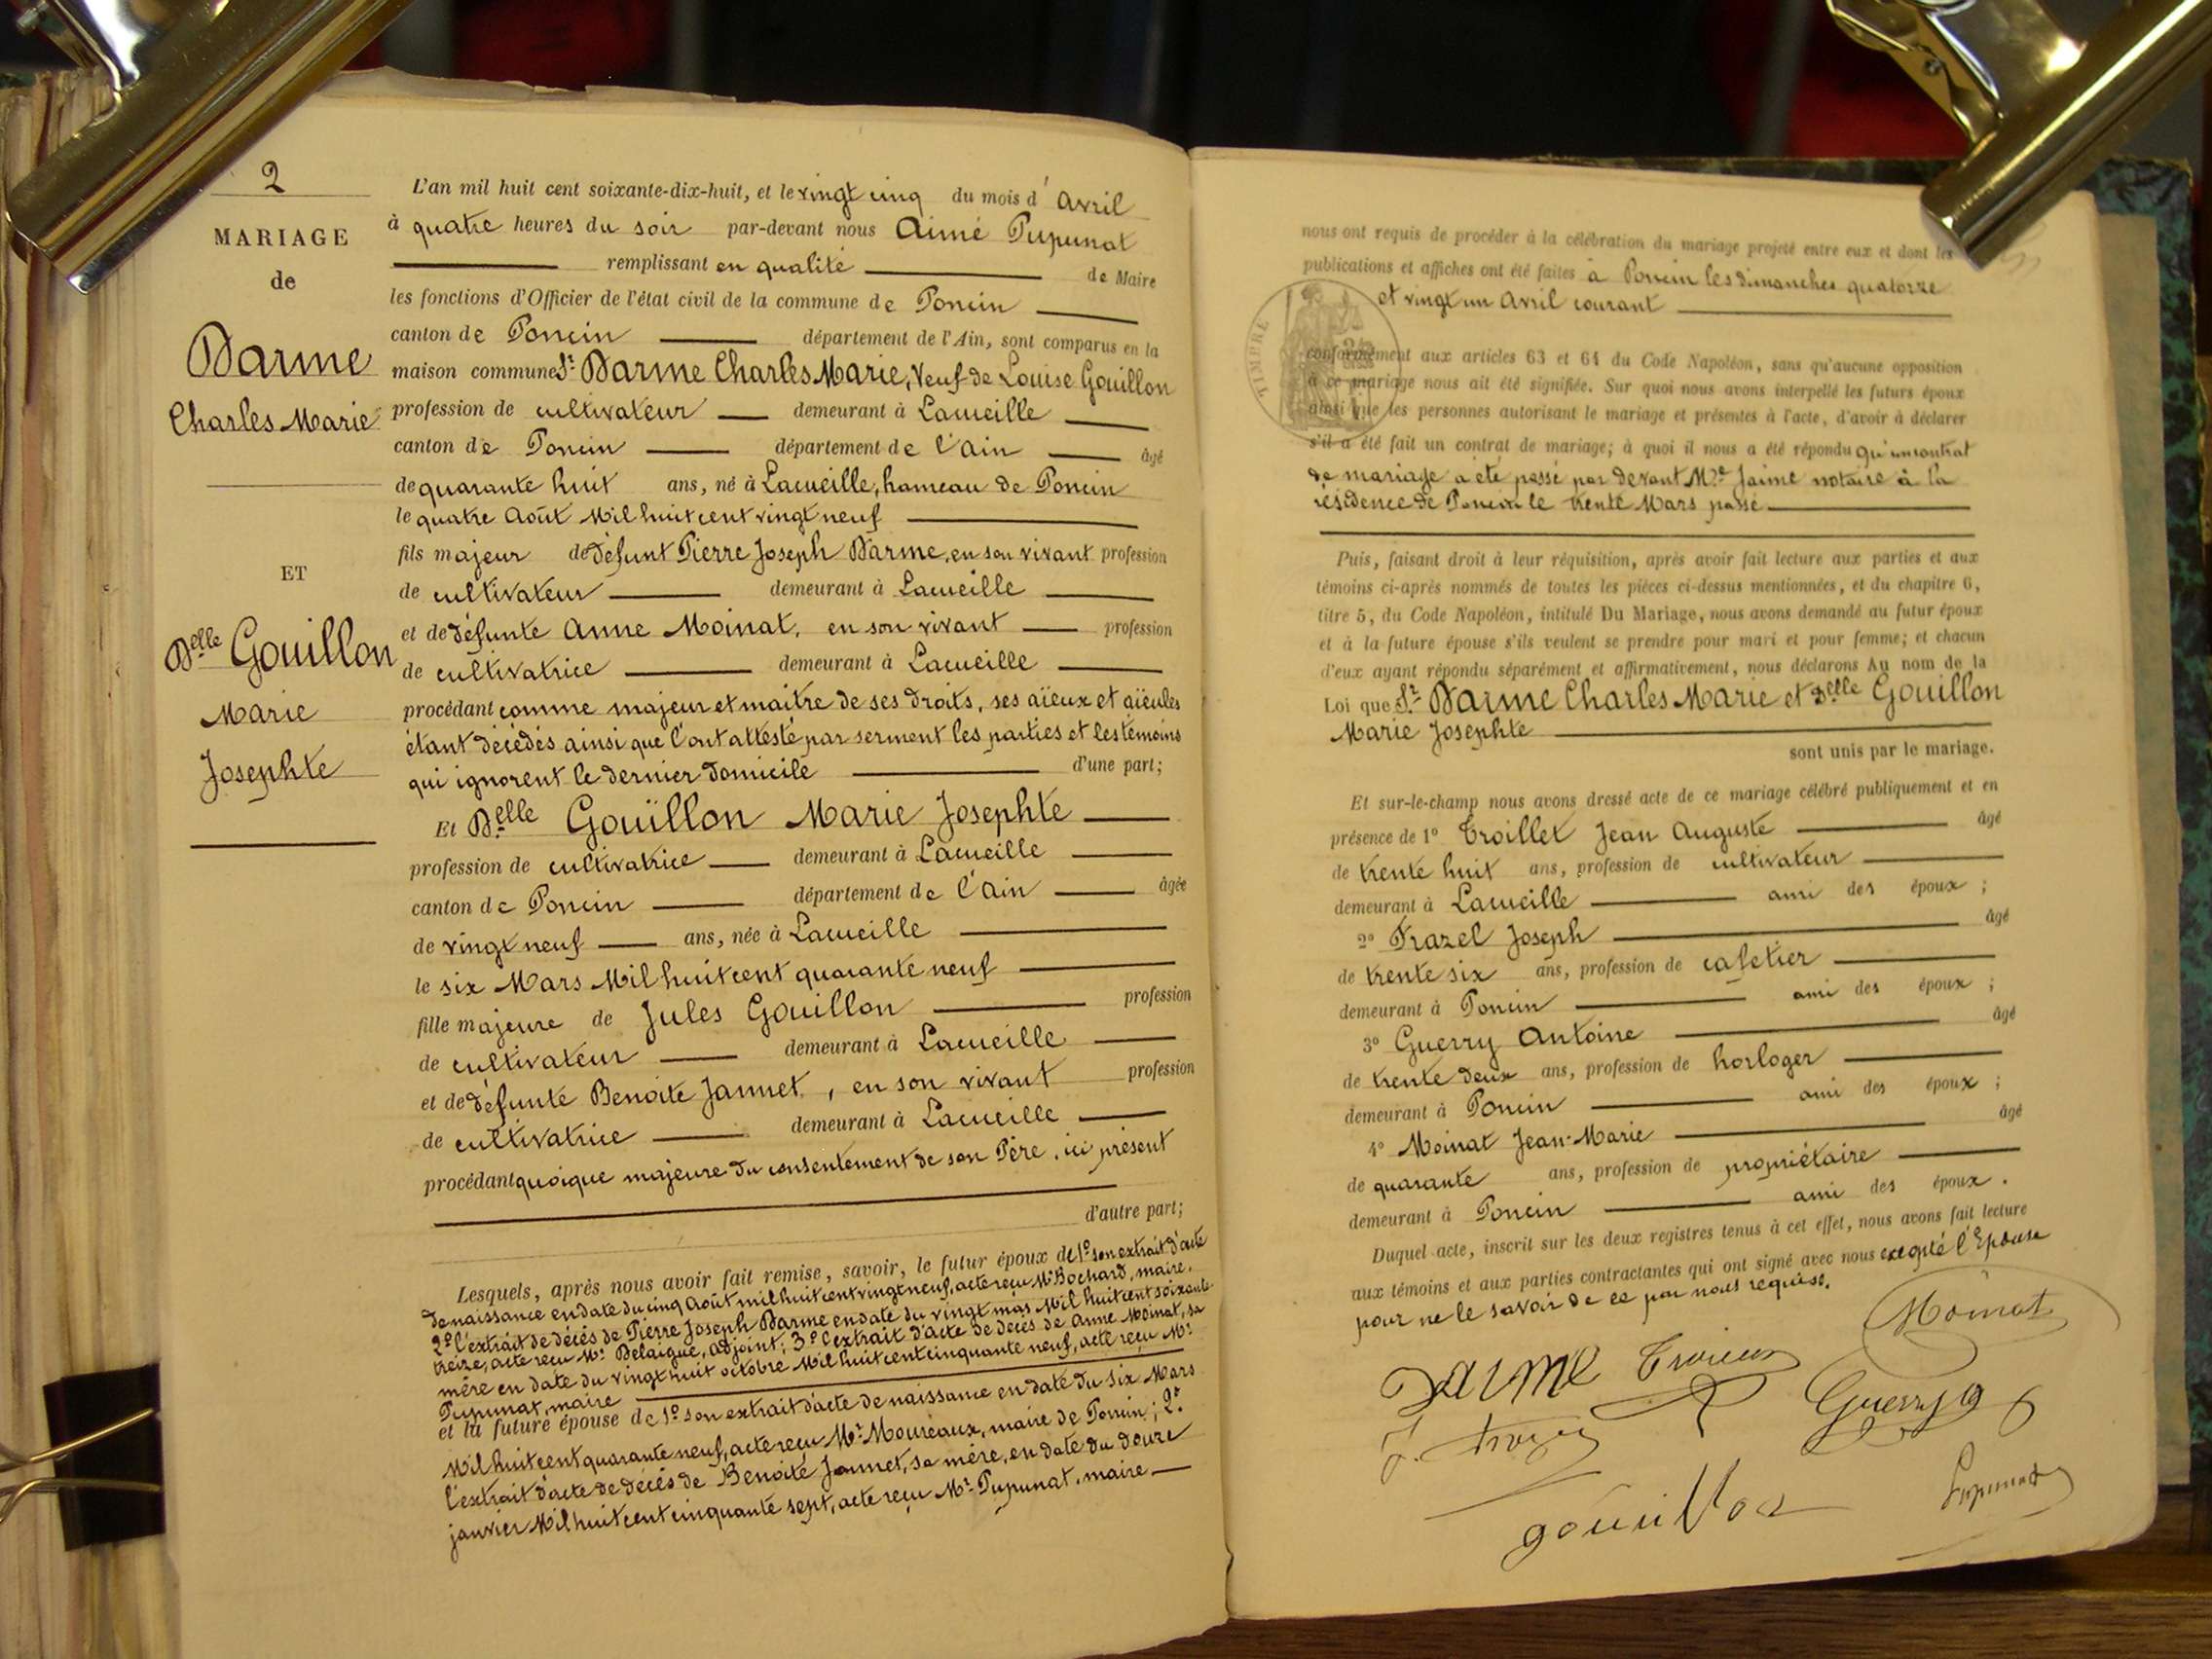 2
MARIAGE
de
Darme
Charles Marie
ET
Delle Gouillon
Marie
Josephte
L'an mil huit cent soixante-dix-huit, et le vingt cinq du mois d' Avril
à quatre heures du soir par-devant nous Aimé Pupunat
remplissant en qualité de Maire
les fonctions d'Officier de l'état civil de la commune de Poncin
canton de Poncin département de l'Ain, sont comparus en la
maison commune Sr. Darme Charles Marie, Veuf de Louise Gouillon
profession de cultivateur demeurant à Lacueille
canton de Poncin département de l'Ain âgé
de quarante huit ans, né à Lacueille, hameau de Poncin
le quatre Août Mil huit cent vingt neuf
fils majeur de défunt Pierre Joseph Darme, en son vivant profession
de cultivateur demeurant à Lacueille
et de défunte Anne Moinat, en son vivant profession
de cultivatrice demeurant à Lacueille
procédant comme majeur et maitre de ses droits, ses aïeux et aïeules
étant décédés ainsi que l'ont attesté par serment les parties et les témoins
qui ignorent le dernier domicile d'une part;
Et Delle Gouïllon Marie Josephte
profession de cultivatrice demeurant à Lacueille
canton de Poncin département de l'Ain âgée
de vingt neuf ans, née à Lacueille
le six Mars Mil huit cent quarante neuf
fille majeure de Jules Gouillon profession
de cultivateur demeurant à Lacueille
et de défunte Benoite Jannet, en son vivant profession
de cultivatrice demeurant à Lacueille
procédant quoique majeure du consentement de son Père, ici présent
d'autre part;
Lesquels, après nous avoir fait remise, savoir, le futur époux de 1º son extrait d'acte
de naissance en date du cinq Août mil huit cent vingt neuf, acte reçu Mr Bochard, maire,
2º l'extrait de décès de Pierre Joseph Darme en date du vingt mas Mil huit cent soixante
treize, acte reçu Mr. Delaigue, adjoint; 3º l'extrait d'acte de décès de Anne Moinat, sa
mère en date du vingt huit octobre Mil huit cent cinquante neuf, acte reçu Mr.
Pupunat, maire
et la future épouse de 1º son extrait d'acte de naissance en date du six Mars
Mil huit cent quarante neuf, acte reçu Mr. Moureaux, maire de Poncin; 2º
l'extrait d'acte de décès de Benoite Jannet, sa mère, en date du douze
janvier Mil huit cent cinquante sept, acte reçu Mr. Pupunat, maire
nous ont requis de procéder à la célébration du mariage projeté entre eux et dont les
publications et affiches ont été faites à Poncin les dimanches quatorze
et vingt un Avril courant
TIMBRE
conformément aux articles 63 et 64 du Code Napoléon, sans qu'aucune opposition
à ce mariage nous ait été signifiée. Sur quoi nous avons interpellé les futurs époux
ainsi que les personnes autorisant le mariage et présentes à l'acte, d'avoir à déclarer
s'il a été fait un contrat de mariage; à quoi il nous a été répondu qu'un contrat
de mariage a été passé par devant Me Jaime notaire à la
résidence de Poncin le trente Mars passé
Puis, faisant droit à leur réquisition, après avoir fait lecture aux parties et aux
témoins ci-après nommés de toutes les pièces ci-dessus mentionnées, et du chapitre 6,
titre 5, du Code Napoléon, intitulé Du Mariage, nous avons demandé au futur époux
et à la future épouse s'ils veulent se prendre pour mari et pour femme; et chacun
d'eux ayant répondu séparément et affirmativement, nous déclarons Au nom de la
Loi que Sr. Darme Charles Marie et Delle Gouillon
Marie Josephte
sont unis par le mariage.
Et sur-le-champ nous avons dressé acte de ce mariage célébré publiquement et en
présence de 1º Troillet Jean Auguste âgé
de trente huit ans, profession de cultivateur
demeurant à Lacueille ami des époux;
2º Trazel Joseph âgé
de trente six ans, profession de cafetier
demeurant à Poncin ami des époux;
3º Guerry Antoine âgé
de trente deux ans, profession de horloger
demeurant à Poncin ami des époux;
4º Moinat Jean-Marie âgé
de quarante ans, profession de propriétaire
demeurant à Poncin ami des époux.
Duquel acte, inscrit sur les deux registres tenus à cet effet, nous avons fait lecture
aux témoins et aux parties contractantes qui ont signé avec nous excepté l'Epouse
pour ne le savoir de ce par nous requise.
Moinat
Darme
Guerry a
gouillon
Pupunat